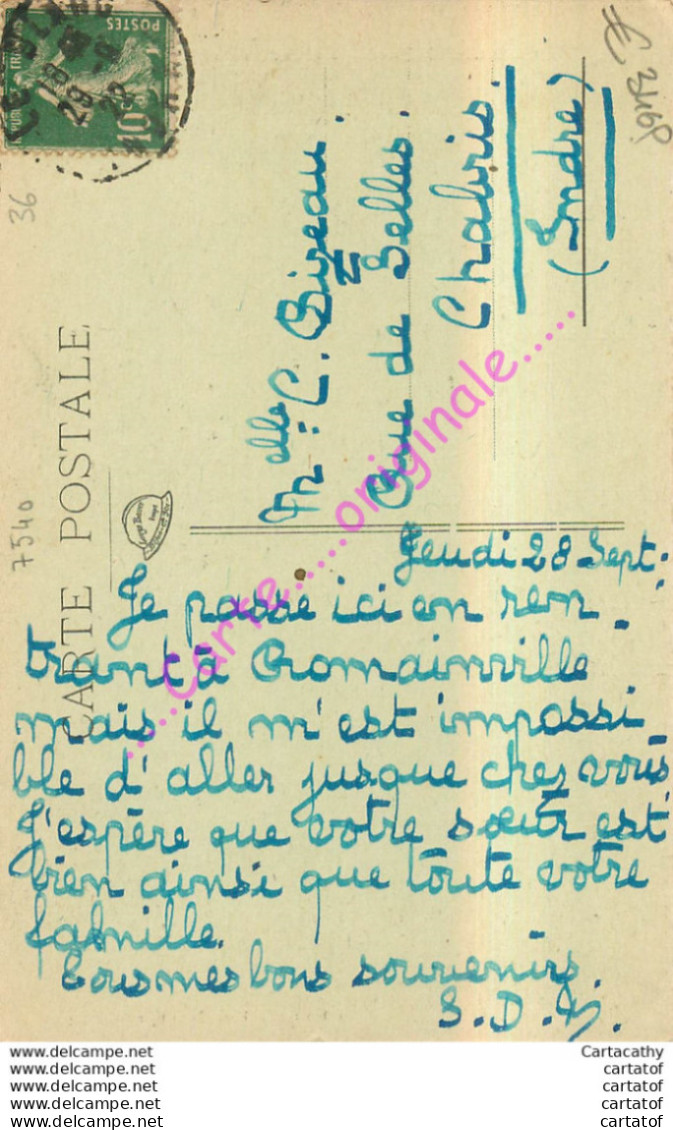 POSTES
10c
36
7540
CARTE POSTALE
Melle C. Bizeau.
Rue de Selles.
Chabris.
(Indre)
Jeudi 28 Sept.
Je passe ici en ren
trant à Romainville
mais il m'est impossi
ble d'aller jusque chez vous
J'espère que votre sœur est
bien ainsi que toute votre
famille.
Tous mes bons souvenirs.
.....Carte......originale......
www.delcampe.net Cartacathy
www.delcampe.net cartatof
www.delcampe.net cartatof
www.delcampe.net cartatof
www.delcampe.net cartatof